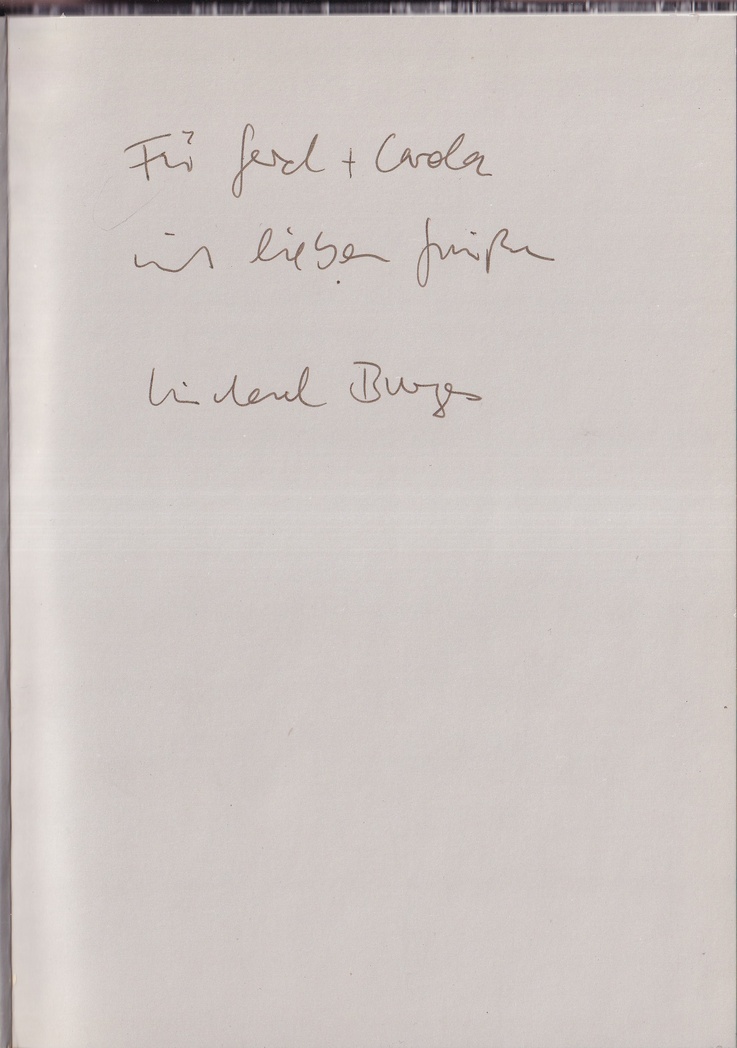 Für Gerd + Carola
mit lieben Grüßen
Michael Burges